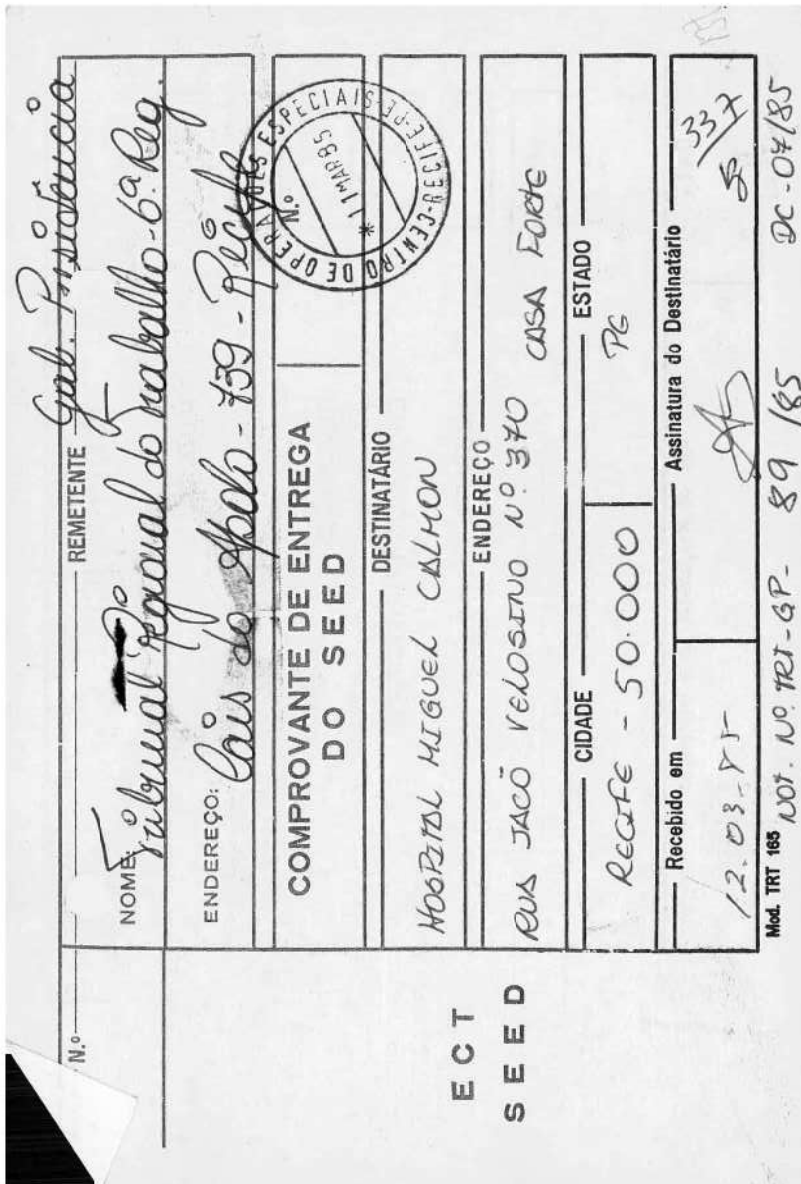 N.º
REMETENTE Gab. Presidência
NOME: Tribunal Regional do Trabalho - 6ª Reg.
ENDEREÇO: Cais do Apolo - 739 - Recife
COMPROVANTE DE ENTREGA
DO SEED
N.º
CENTRO DE OPERAÇÕES ESPECIAIS-RECIFE-PE
* 11MAR85
DESTINATÁRIO
HOSPITAL MIGUEL CALMON
ENDEREÇO
RUA JACÓ VELOSINO Nº 370 CASA FORTE
CIDADE
ESTADO
RECIFE - 50.000
PE
Recebido em
Assinatura do Destinatário
12.03.85
337
ECT
SEED
Mod. TRT 165
NOT. Nº TRT-GP- 89 /85 DC-04/85